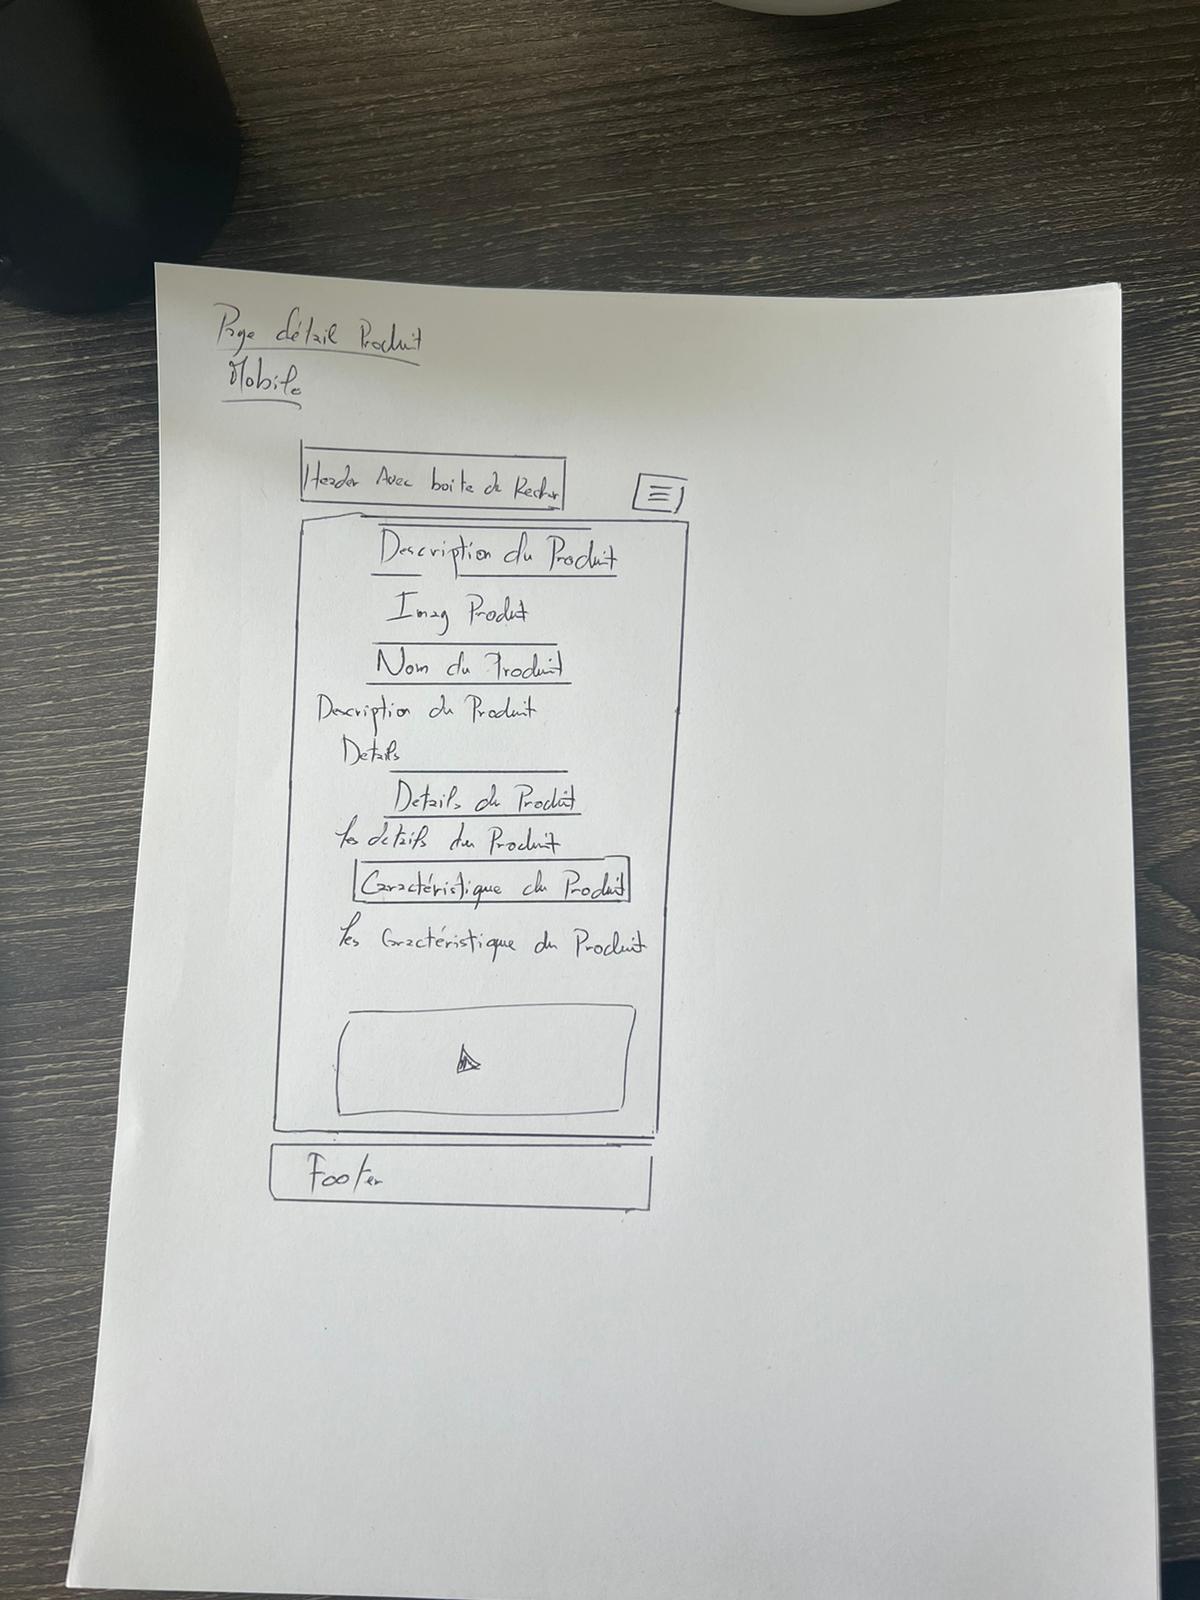 Page détail Produit
Mobile
Header Avec boite de Recher
Description du Produit
Imag Produit
Nom du Produit
Description du Produit
Details
Details du Produit
les détails du Produit
Caractéristique du Produit
les Caractéristique du Produit
Footer